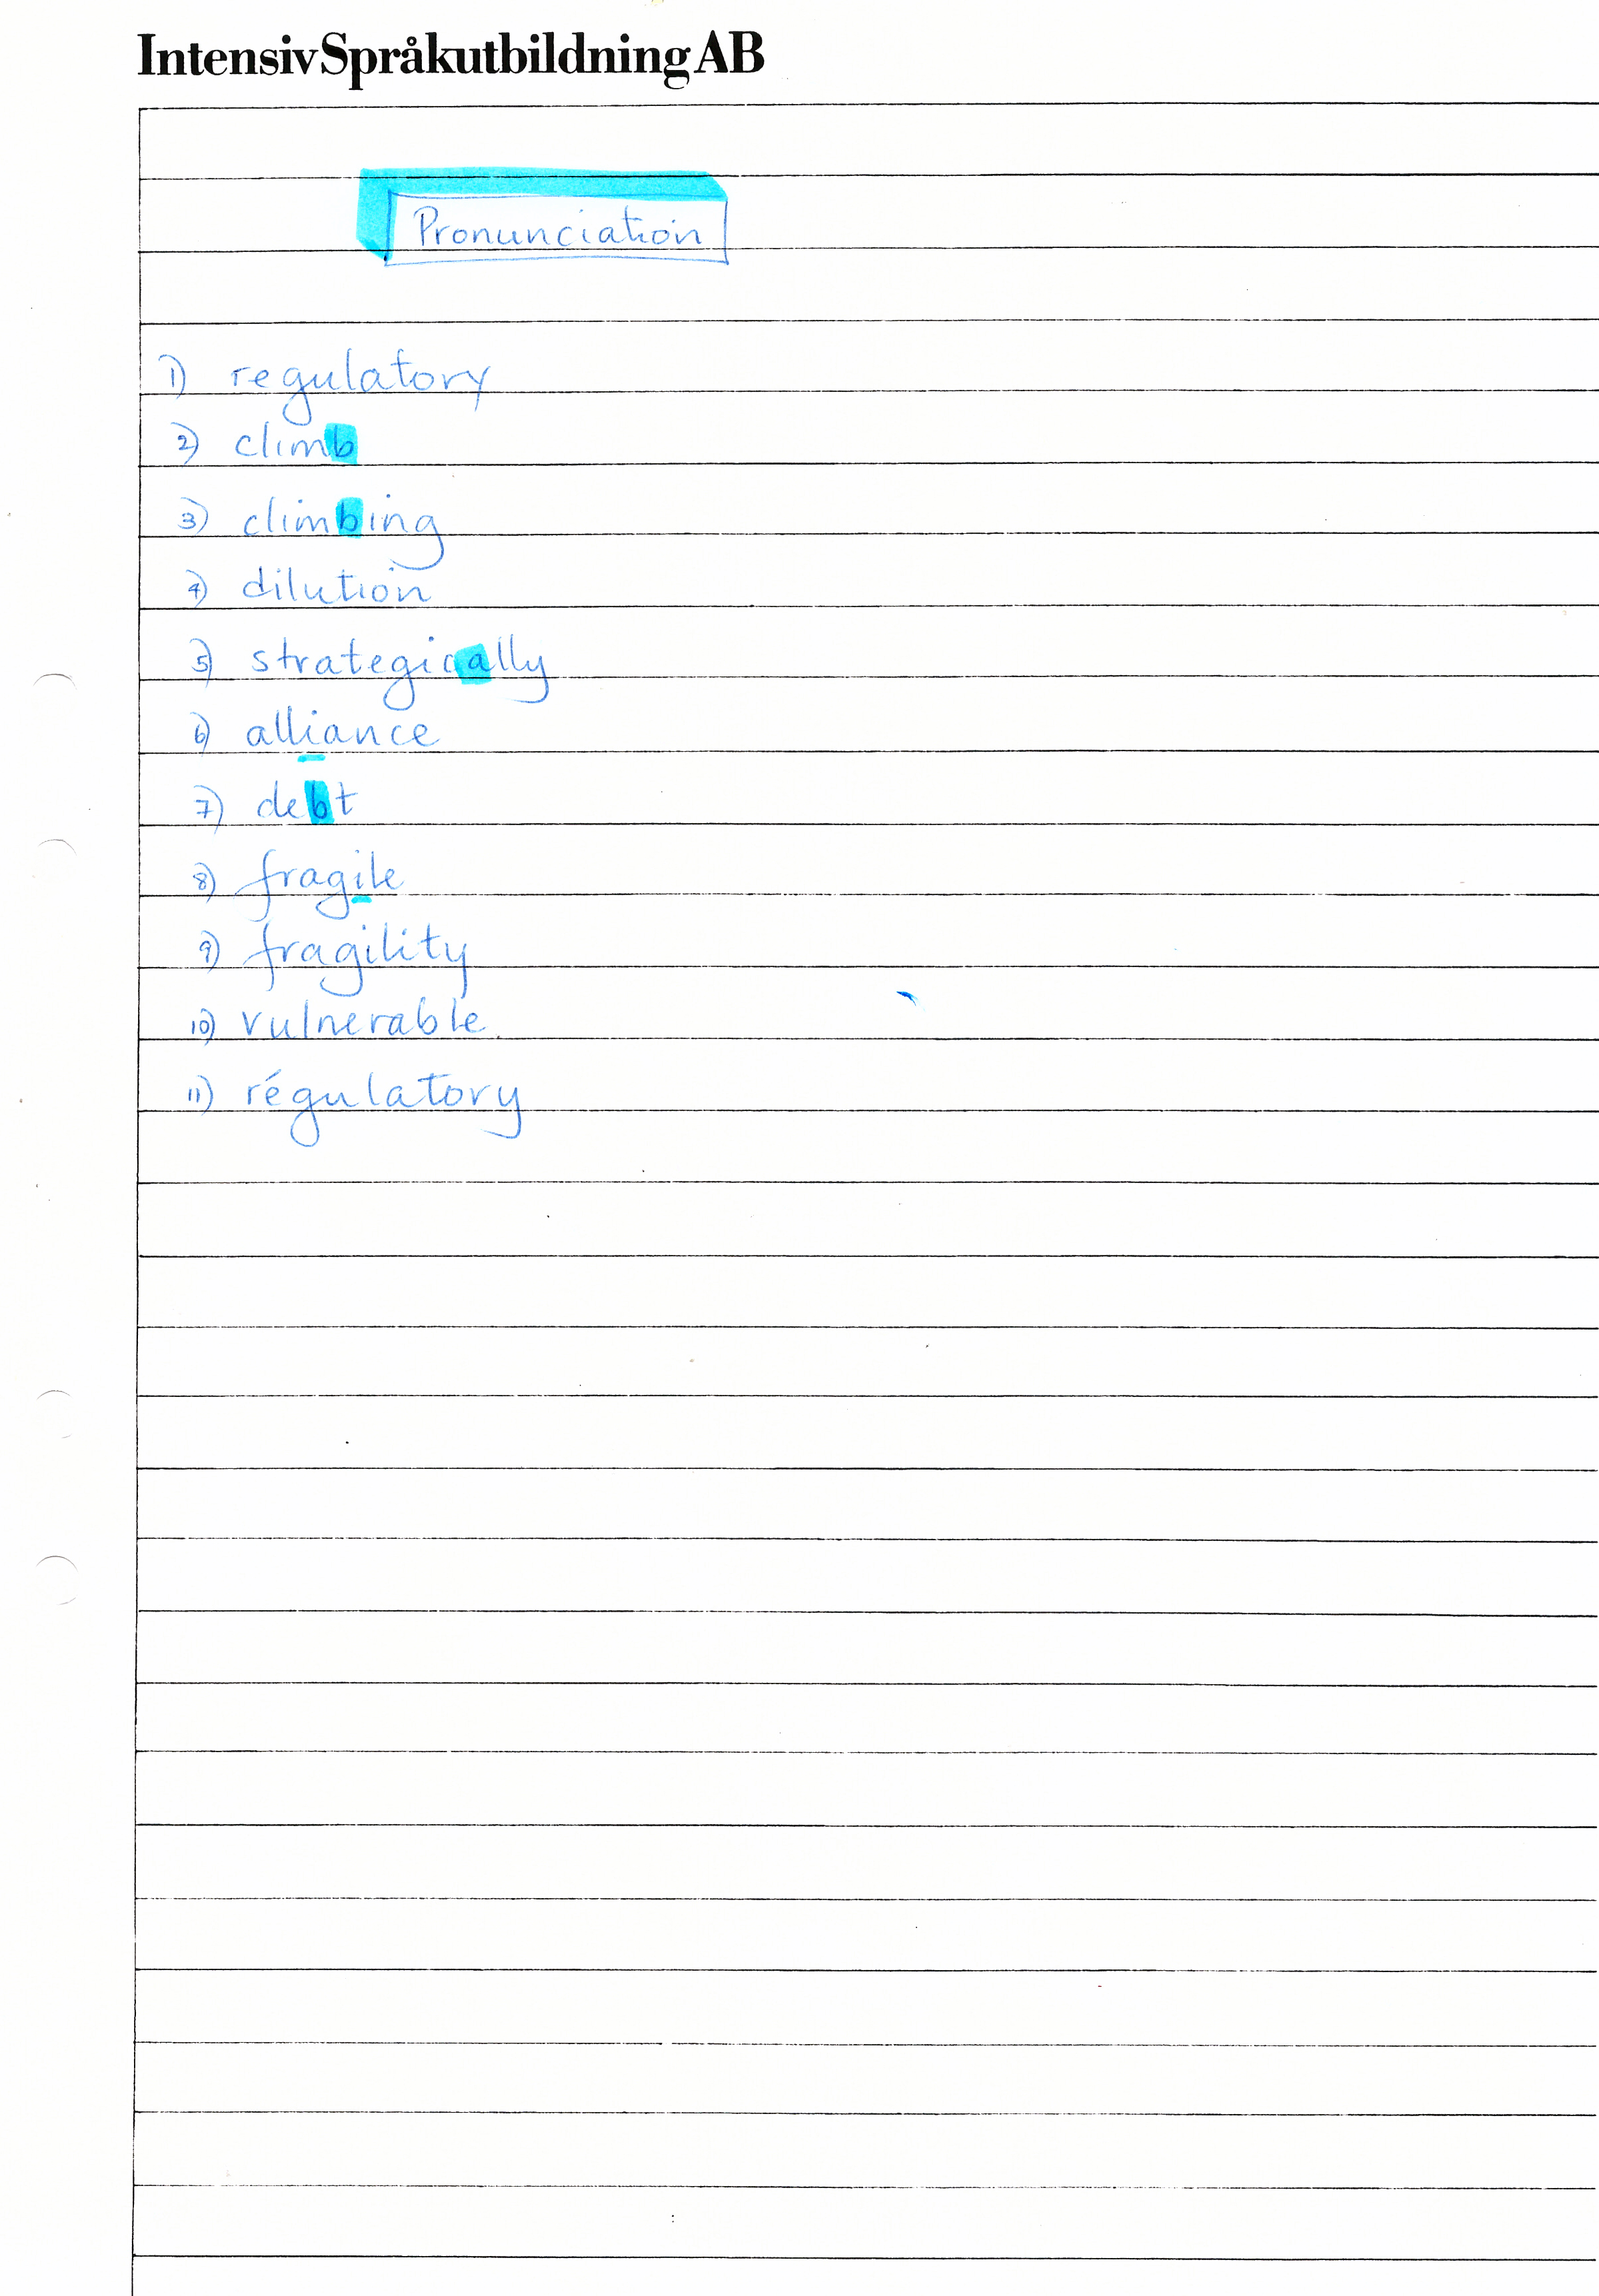 Intensiv Språkutbildning AB
Pronunciation
1) regulatory
2) climb
3) climbing
4) dilution
5) strategically
6) alliance
7) debt
8) fragile
9) fragility
10) vulnerable
11) régulatory